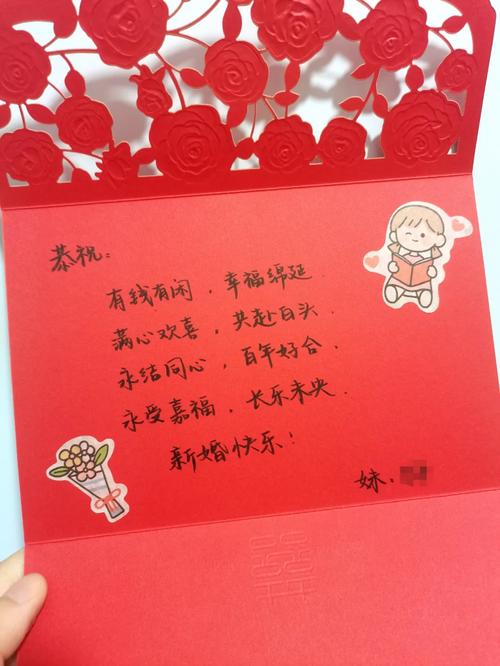 恭祝：
有钱有闲，幸福绵延．
满心欢喜，共赴白头．
永结同心，百年好合．
永受嘉福，长乐未央．
新婚快乐！
妹．
囍